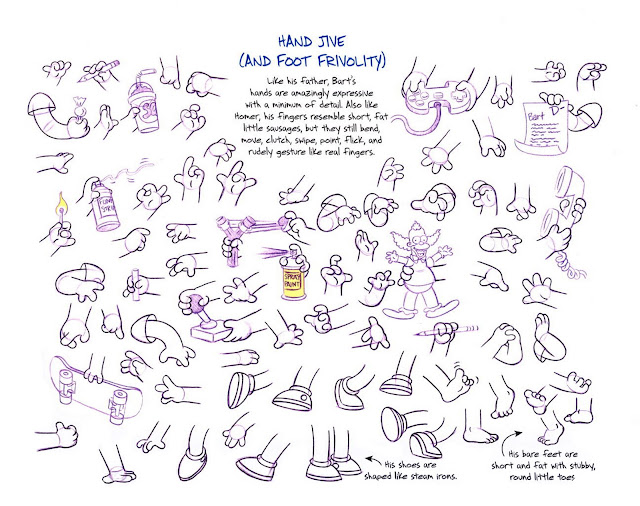 HAND JIVE
(AND FOOT FRIVOLITY)
Like his father, Bart's
hands are amazingly expressive
with a minimum of detail. Also like
Homer, his fingers resemble short, fat
little sausages, but they still bend,
move, clutch, swipe, point, flick, and
rudely gesture like real fingers.
Bart
D-
SPRAY
PAINT
His shoes are
shaped like steam irons.
His bare feet are
short and fat with stubby,
round little toes